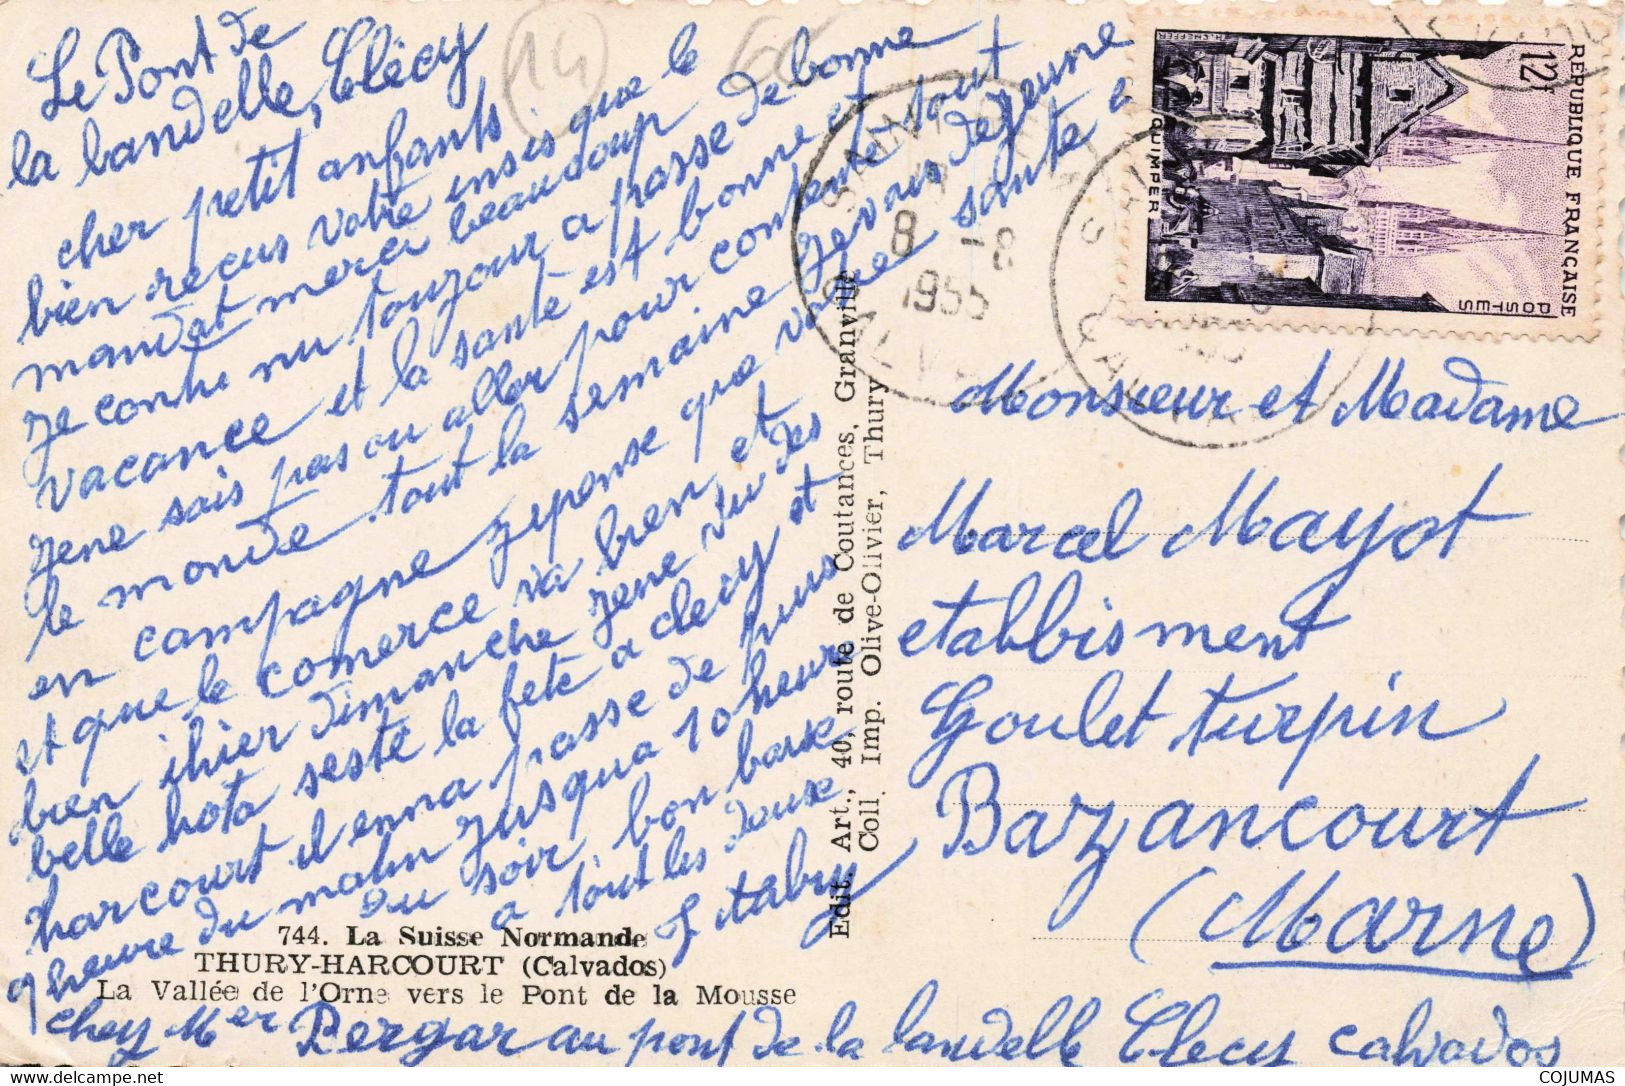 Le Pont de
la landelle, Clécy
cher petit anfants
bien recus votre insis que le
mandat merci beaucoup
je contu nu toujour a passe de bonne
vacance et la sante est bonne et
je ne sais pas ou aller pour contente tout
le monde tout la semaine je vous dejeune
en campagne je ponse que votre sante a
et que le comerce va bien et
bien ihier dimanche jene vu des
belle hota seste la fete a clecy et
harcourt il enna passe de puis
9 heure du matin jusqua 10 heure
du soir, bon baise
a tout les deuse
744. La Suisse Normande
THURY-HARCOURT (Calvados)
La Vallée de l'Orne vers le Pont de la Mousse
chez Mer Pergar au pont de la landelle Clecy calvados
Edit. Art., 40, route de Coutances, Granville
Coll. Imp. Olive-Olivier, Thury
14
8 -8
1955
CALVADOS
RÉPUBLIQUE FRANÇAISE
POSTES
12F
QUIMPER
Monsieur et Madame
Marcel Mayot
etabbisment
Goulet turpin
Bazancourt
(Marne)
COJUMAS